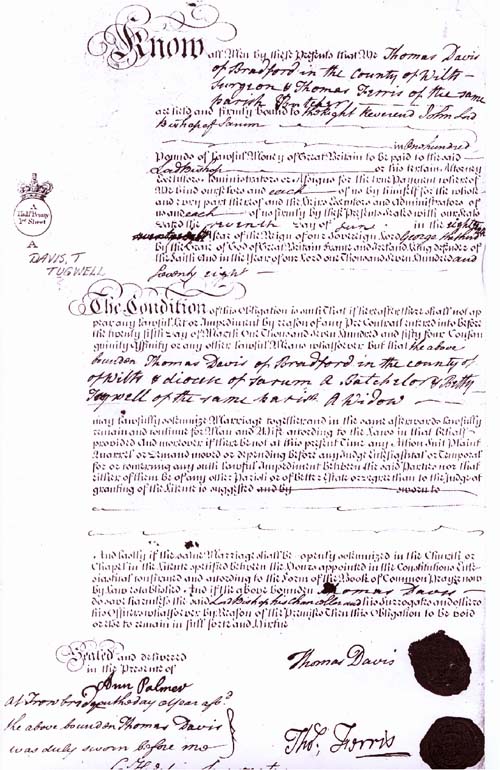 Know all Men by these Presents that We Thomas Davis
of Bradford in the county of Wilts
Surgeon & Thomas Ferris of the same
parish
are held and firmly bound to the Right Reverend John Lord
Bishop of Sarum
in One hundred
Pounds of Lawful Money of Great Britain to be paid to the said
Lord Bishop or his certain Attorney
Executors Administrators or Assigns for the true Payment whereof
We bind ourselves and each of us by himself for the whole
and every part thereof and the Heirs Executors and Administrators of
us and each of us firmly by these Presents Sealed with our Seals
Dated the seventh Day of June in the
Year of the Reign of our Sovereign Lord George the third
by the Grace of God of Great Britain France and Ireland King Defender of
the Faith And in the Year of our Lord One Thousand Seven Hundred and
Seventy eight
A
Half Penny
Pr Sheet
A
DAVIS, T
TUGWELL
The Condition of this Obligation is such That if hereafter there shall not ap
pear any Lawful Let or Impediment by reason of any Pre Contract entered into before
the twenty fifth Day of March One Thousand Seven Hundred and fifty four Consan
guinity Affinity or any other Lawful Means whatsoever but that the above
bounden Thomas Davis of Bradford in the county of
of Wilts & diocese of Sarum A Batchelor & Betty
Tugwell of the same parish A Widow
may lawfully solemnize Marriage together and in the same afterwards lawfully
remain and continue for Man and Wife according to the Laws in that behalf
provided And moreover if there be not at this present Time any Action Suit Plaint
Quarrel or Demand moved or depending before any Judge Ecclesiastical or Temporal
for or concerning any such lawful Impediment between the said Parties nor that
either of them be of any other Parish or of better Estate or Degree than to the Judge at
granting of the Licence is suggested and by sworn to
And lastly if the same Marriage shall be openly solemnized in the Church or
Chapel in the Licence specified between the Hours appointed in the Constitutions Eccle
siastical confirmed and according to the Form of the Book of Common Prayer now
by Law established And if the above bounden Thomas Davis
do save harmless the said Lord Bishop his Chancellor and his Surrogates and others
his Officers whatsoever by Reason of the Premises Then this Obligation to be void
or else to remain in full force and Virtue
Sealed and delivered
in the Presence of
Thomas Davis
Ann Palmer
At Trowbridge the day & year afsd.
the above bounden Thomas Davis
was duly sworn before me
Thos. Ferris